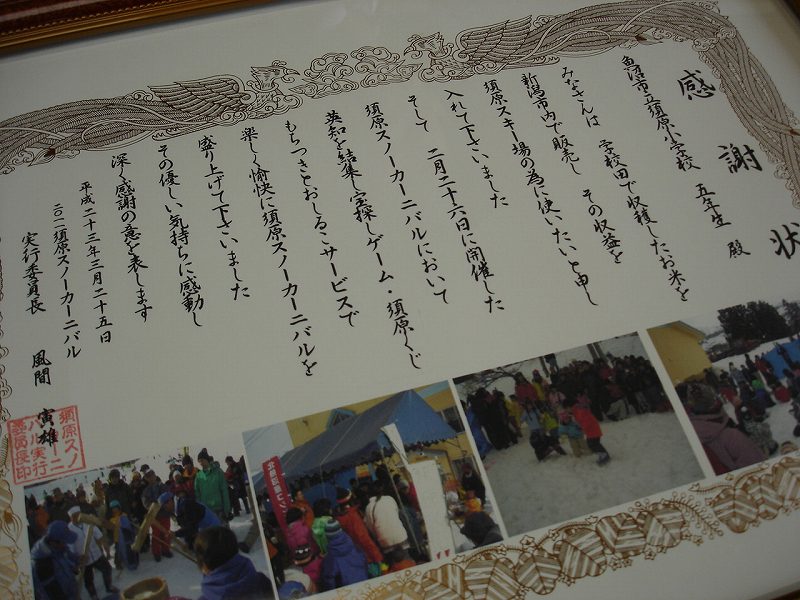 感謝状
魚沼市立須原小学校 五年生 殿
みなさんは 学校田で収穫したお米を
新潟市内で販売し その収益を
須原スキー場の為に使いたいと申し
入れて下さいました
そして 二月二十六日に開催した
須原スノーカーニバルにおいて
英知を結集し宝探しゲーム・須原くじ
もちつきとおしるこサービスで
楽しく愉快に須原スノーカーニバルを
盛り上げて下さいました
その優しい気持ちに感動し
深く感謝の意を表します
平成二十三年三月二十五日
二〇一一須原スノーカーニバル
実行委員長 風間 寅雄
須原スノーカーニバル実行委員長印